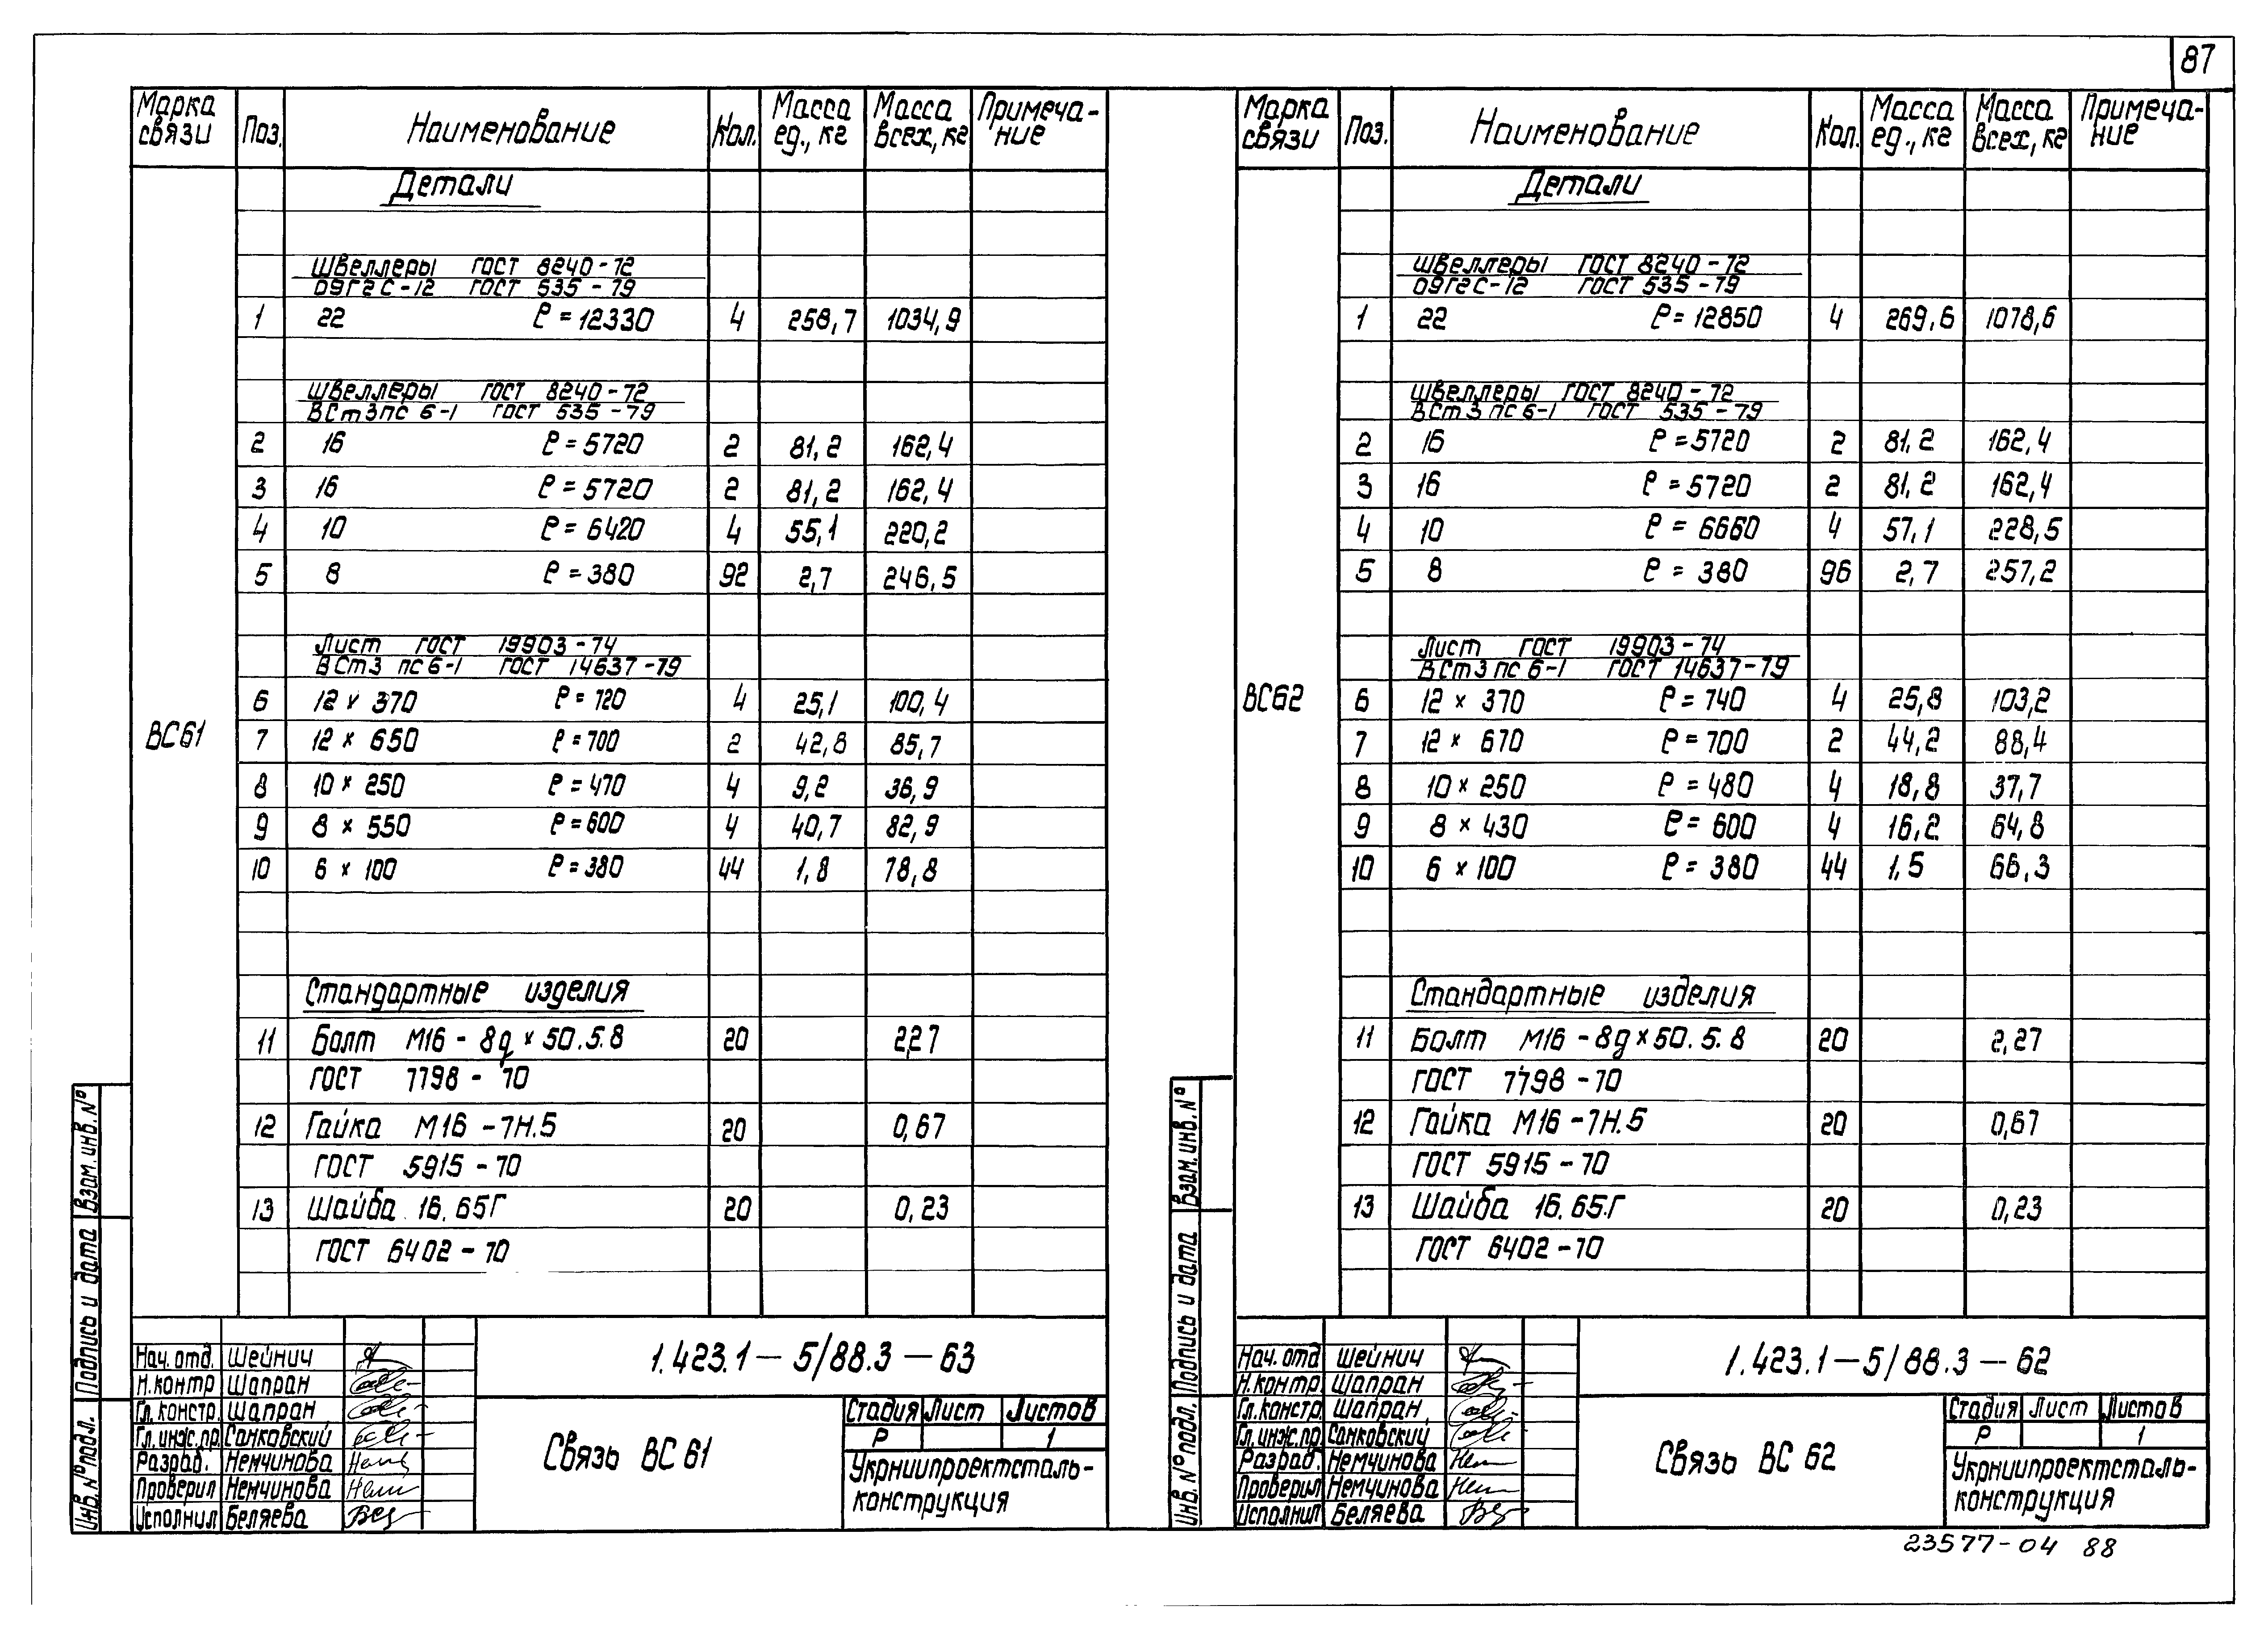 87
Марка связи Поз. Наименование Кол. Масса ед., кг Масса всех, кг Примечание
Детали
Швеллеры ГОСТ 8240-72
09Г2С-12 ГОСТ 535-79
1 22 ℓ=12330 4 258,7 1034,9
Швеллеры ГОСТ 8240-72
ВСт3пс6-1 ГОСТ 535-79
2 16 ℓ=5720 2 81,2 162,4
3 16 ℓ=5720 2 81,2 162,4
4 10 ℓ=6420 4 55,1 220,2
5 8 ℓ=380 92 2,7 246,5
Лист ГОСТ 19903-74
ВСт3пс6-1 ГОСТ 14637-79
6 12×370 ℓ=720 4 25,1 100,4
ВС61 7 12×650 ℓ=700 2 42,8 85,7
8 10×250 ℓ=470 4 9,2 36,9
9 8×550 ℓ=600 4 40,7 82,9
10 6×100 ℓ=380 44 1,8 78,8
Стандартные изделия
11 Болт М16-8g×50.5.8 20 2,27
ГОСТ 7798-70
12 Гайка М16-7Н.5 20 0,67
ГОСТ 5915-70
13 Шайба 16.65Г 20 0,23
ГОСТ 6402-70
Взам. инв. №
Подпись и дата
Инв. № подл.
Нач. отд. Шейнич
Н. контр Шапран
Гл. констр. Шапран
Гл. инж. пр. Санковский
Разраб. Немчинова
Проверил Немчинова
Исполнил Беляева
1.423.1-5/88.3-63
Связь ВС 61
Стадия Лист Листов
Р 1
Укрниипроектсталь-
конструкция
Марка связи Поз. Наименование Кол. Масса ед., кг Масса всех, кг Примечание
Детали
Швеллеры ГОСТ 8240-72
09Г2С-12 ГОСТ 535-79
1 22 ℓ=12850 4 269,6 1078,6
Швеллеры ГОСТ 8240-72
ВСт3пс6-1 ГОСТ 535-79
2 16 ℓ=5720 2 81,2 162,4
3 16 ℓ=5720 2 81,2 162,4
4 10 ℓ=6660 4 57,1 228,5
5 8 ℓ=380 96 2,7 257,2
Лист ГОСТ 19903-74
ВСт3пс6-1 ГОСТ 14637-79
ВС62 6 12×370 ℓ=740 4 25,8 103,2
7 12×670 ℓ=700 2 44,2 88,4
8 10×250 ℓ=480 4 18,8 37,7
9 8×430 ℓ=600 4 16,2 64,8
10 6×100 ℓ=380 44 1,5 66,3
Стандартные изделия
11 Болт М16-8g×50.5.8 20 2,27
ГОСТ 7798-70
12 Гайка М16-7Н.5 20 0,67
ГОСТ 5915-70
13 Шайба 16.65.Г 20 0,23
ГОСТ 6402-70
Взам. инв. №
Подпись и дата
Инв. № подл.
Нач. отд Шейнич
Н. контр. Шапран
Гл. констр. Шапран
Гл. инж. пр. Санковский
Разраб. Немчинова
Проверил Немчинова
Исполнил Беляева
1.423.1-5/88.3-62
Связь ВС 62
Стадия Лист Листов
Р 1
Укрниипроектсталь-
конструкция
23577-04 88